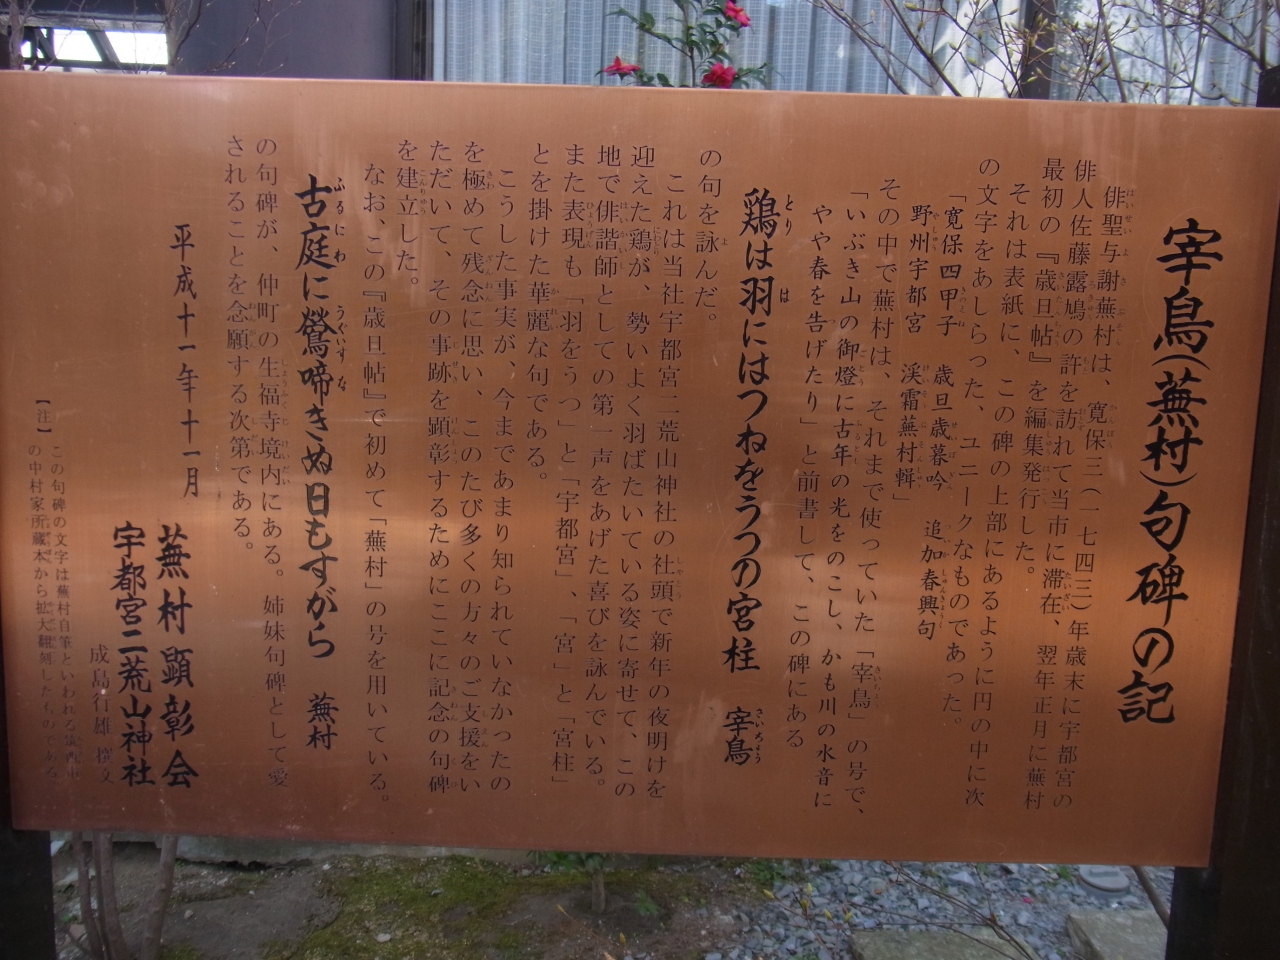 宰鳥(蕪村)句碑の記
俳聖与謝蕪村は、寛保三(一七四三)年歳末に宇都宮の
俳人佐藤露鳩の許を訪れて当市に滞在、翌年正月に蕪村
最初の『歳旦帖』を編集発行した。
それは表紙に、この碑の上部にあるように円の中に次
の文字をあしらった、ユニークなものであった。
「寛保四甲子 歳旦歳暮吟 追加春興句
野州宇都宮 渓霜蕪村輯」
その中で蕪村は、それまで使っていた「宰鳥」の号で、
「いぶき山の御燈に古年の光をのこし、かも川の水音に
やや春を告げたり」と前書して、この碑にある
鶏は羽にはつねをうつの宮柱 宰鳥
の句を詠んだ。
これは当社宇都宮二荒山神社の社頭で新年の夜明けを
迎えた鶏が、勢いよく羽ばたいている姿に寄せて、この
地で俳諧師としての第一声をあげた喜びを詠んでいる。
また表現も「羽をうつ」と「宇都宮」、「宮」と「宮柱」
とを掛けた華麗な句である。
こうした事実が、今まであまり知られていなかったの
を極めて残念に思い、このたび多くの方々のご支援をい
ただいて、その事跡を顕彰するためにここに記念の句碑
を建立した。
なお、この『歳旦帖』で初めて「蕪村」の号を用いている。
古庭に鶯啼きぬ日もすがら 蕪村
の句碑が、仲町の生福寺境内にある。姉妹句碑として愛
されることを念願する次第である。
平成十一年十一月
蕪村顕彰会
宇都宮二荒山神社
成島行雄 撰文
【注】 この句碑の文字は蕪村自筆といわれる
の中村家所蔵本から拡大刻したものである